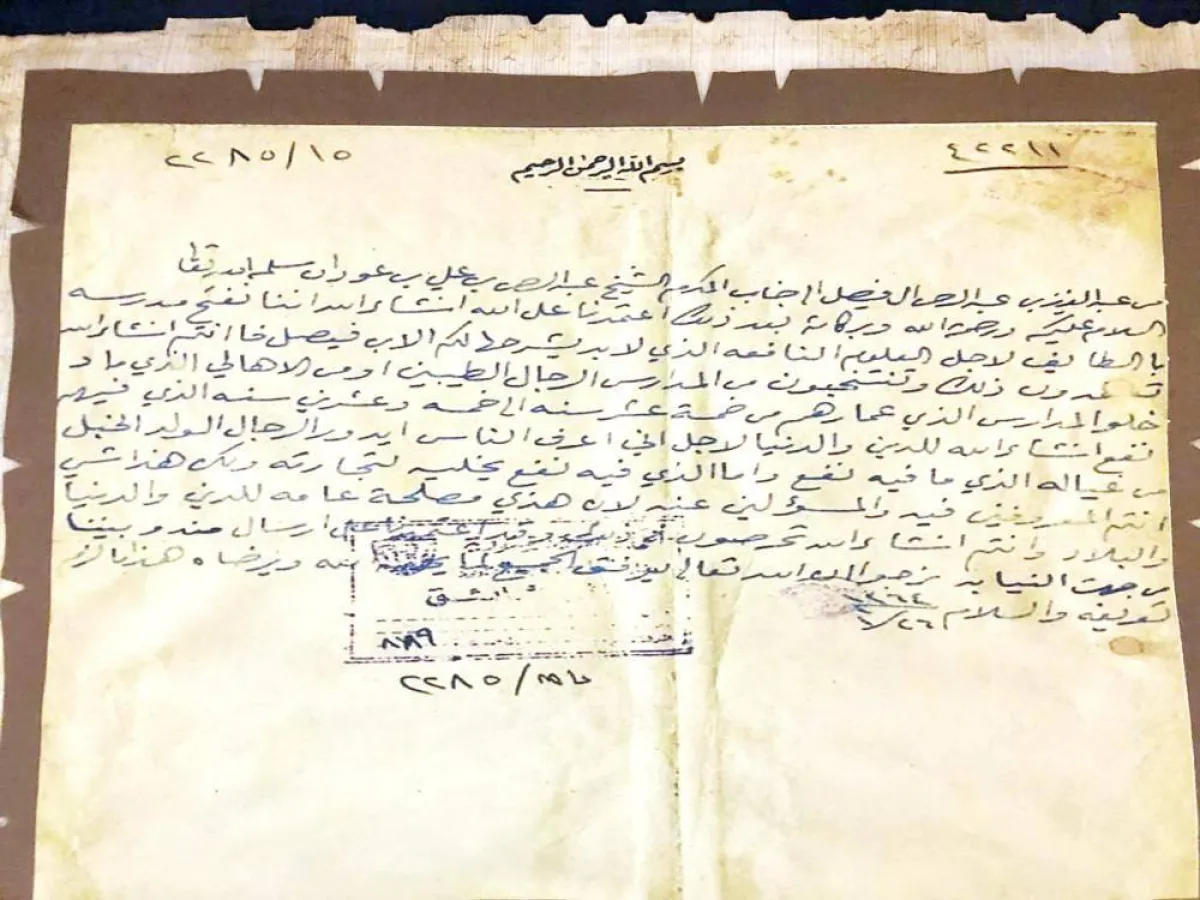 ٤٢٢١١
بسم الله الرحمن الرحيم
٢٢٨٥/١٥
من عبدالعزيز بن عبدالرحمن ال فيصل الى جناب المكرم الشيخ عبدالرحمن بن علي بن عودان سلمه الله تعالى
السلام عليكم ورحمة الله وبركاته بعد ذلك اعتمدنا على الله انشاء الله اننا نفتح مدرسه
بالطايف لاجل العلوم النافعه الذي لابد يشرحها لكم الابن فيصل فا انتم انشاء الله
تعتمدون ذلك وتنتخبون من المدارس الرجال الطيبين او من الاهالي الذي ما د
خلو المدارس الذي عمارهم من خمسة عشر سنه الى خمسه وعشرين سنه الذي فيهم
نفع انشاء الله للدين والدنيا لاجل اني اعرف الناس ايدور الرجال الولد الخبل
من عياله الذي ما فيه نفع واما الذي فيه نفع يخليه لتجارته ولكن هذا شي
انتم المعروفين فيه والمسؤلين عنه لان هذي مصلحة عامه للدين والدنيا
والبلاد وانتم انشاء الله تحرصون ارسال مندوبيننا
من جهت النيابه نرجوا ان الله تعالى يوفق الجميع لما يحبه ويرضاه هذا مالزم
تعريفه والسلام ١٣٦٤
٢٦
الشرق
٨٨٩
٢٢٨٥/